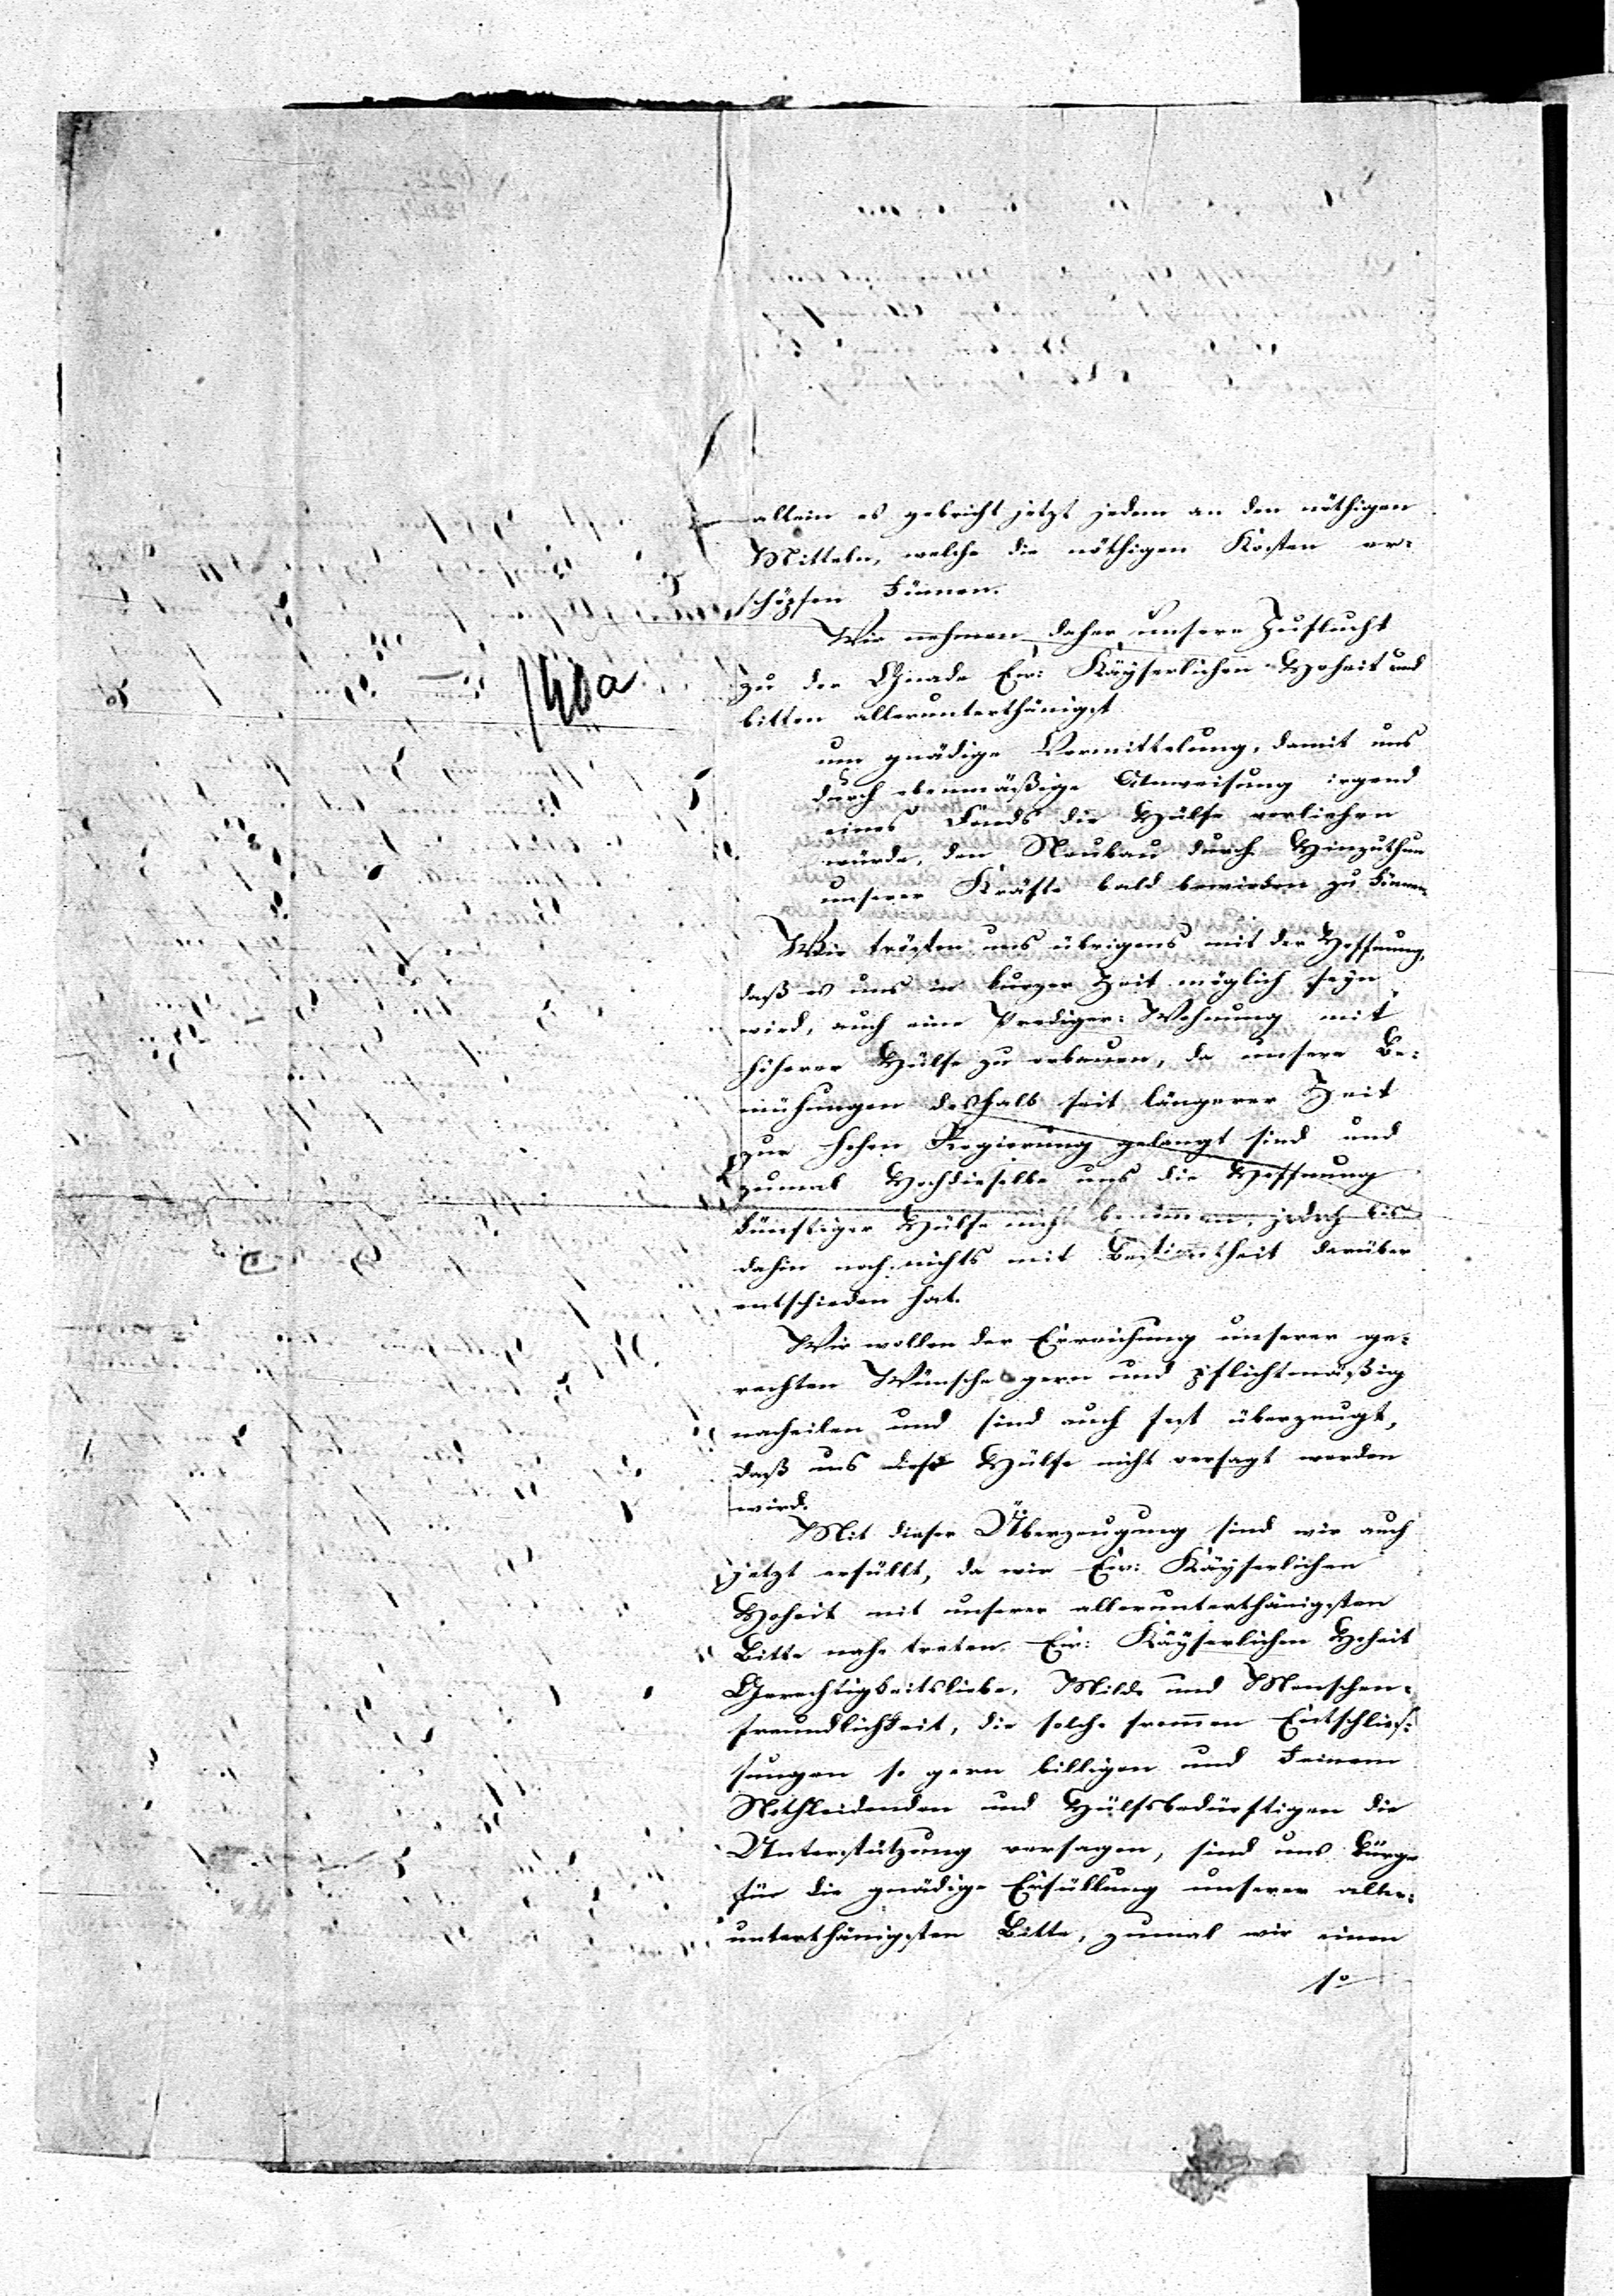 allein es gebricht jetzt jedem an den nöthigen
Mitteln, welche die nöthigen Kosten er-
schöpfen können.
Wir nehmen daher unsere Zuflucht
zu der Gnade Ew: Käyserlichen Hoheit und
bitten allerunterthänigst
140a
um gnädige Vermittelung, damit uns
durch ebenmäßige Anweisung irgend
eines Fonds die Hülfe verliehen
würde, den Neubau durch Hinzuthun
unserer Kräfte bald bewirken zu können.
Wir trösten uns übrigens mit der Hoffnung,
daß es uns in kurzer Zeit möglich seyn
wird, auch eine Prediger-Wohnung mit
höherer Hülfe zu erbauen, da unsere Be-
mühungen deshalb seit längerer Zeit
zur hohen Regierung gelangt sind und
zumal Hochdieselbe uns die Hoffnung
künftiger Hülfe nicht benommen, jedoch bis
dahin noch nichts mit Bestimtheit darüber
entschieden hat.
Wir wollen der Erreichung unserer ge-
rechten Wünsche gern und pflichtmäßig
nacheilen und sind auch fest überzeugt,
daß uns diese Hülfe nicht versagt werden
wird.
Mit dieser Überzeugung sind wir auch
jetzt erfüllt, da wir Ew: Käyserlichen
Hoheit mit unserer allerunterthänigsten
Bitte nahe treten. Ew: Käyserlichen Hoheit
Gerechtigkeitsliebe, Milde und Menschen-
freundlichkeit, die solche frommen Entschlies-
sungen so gern billigen und keinem
Nothleidenden und Hülfsbedürftigen die
Unterstützung versagen, sind uns Bürge
für die gnädige Erfüllung unserer aller-
unterthänigsten Bitte, zumal wir einen
so